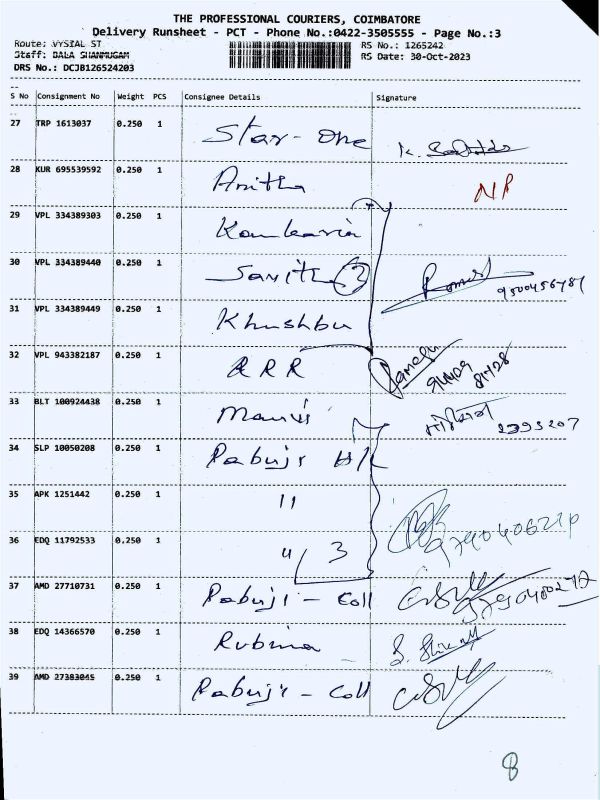 THE PROFESSIONAL COURIERS, COIMBATORE
Delivery Runsheet - PCT - Phone No.:0422-3505555 - Page No.:3
Route: VYSIAL ST RS No.: 1265242
Staff: BALA SHANMUGAM RS Date: 30-Oct-2023
DRS No.: DCJB126524203
S No Consignment No Weight PCS Consignee Details Signature
27 TRP 1613037 0.250 1 Star-One
28 KUR 695539592 0.250 1 Anitha NP
29 VPL 334389303 0.250 1
30 VPL 334389440 0.250 1 Savitha 2 9500456787
31 VPL 334389449 0.250 1 Khushbu
32 VPL 943382187 0.250 1 RRR
33 BLT 100924438 0.250 1 2393207
34 SLP 10050208 0.250 1 Rabuji
35 APK 1251442 0.250 1 "
36 EDQ 11792533 0.250 1 " 3
37 AMD 27710731 0.250 1 Rabuji - Coll
38 EDQ 14366570 0.250 1 Rubina
39 AMD 27383045 0.250 1 Rabuji - Coll
8